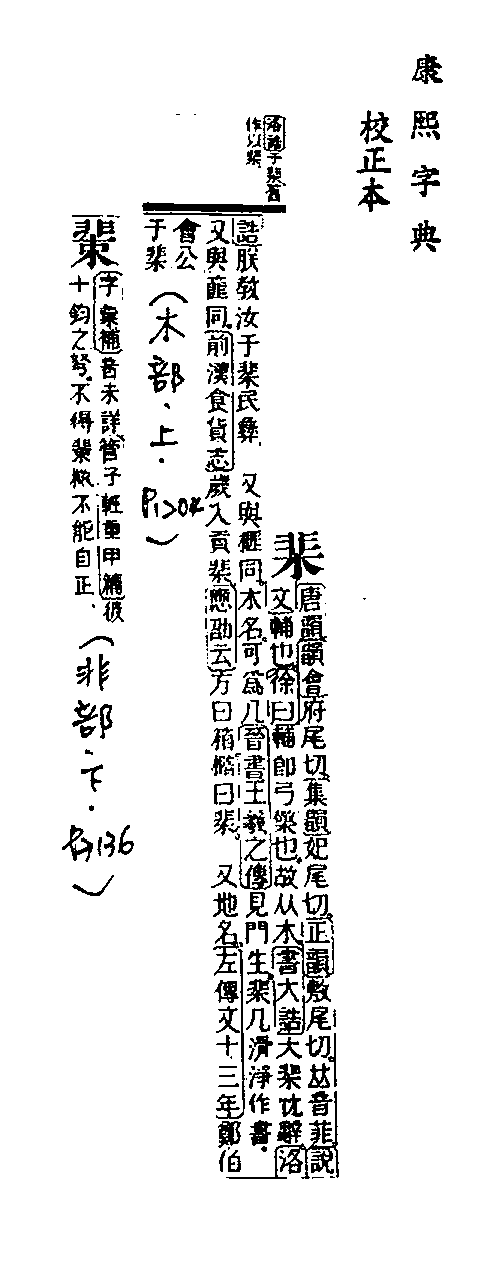 康熙字典
校正本
棐
唐韻韻會府尾切集韻妃尾切正韻敷尾切𠀤音菲說
文輔也徐曰輔卽弓檠也故从木書大誥大棐忱辭洛
誥朕敎汝于棐民彝 又與榧同木名可爲几晉書王羲之傳見門生棐几滑淨作書
又與篚同前漢食貨志歲入貢棐應劭云方曰箱橢曰棐 又地名左傳文十三年鄭伯
會公
于棐
洛誥于棐舊
作以棐
(木部、上.
P1204)
字彙補音未詳管子輕重甲篇彼
十鈞之弩不得棐檠不能自正
(非部.下.
百136)